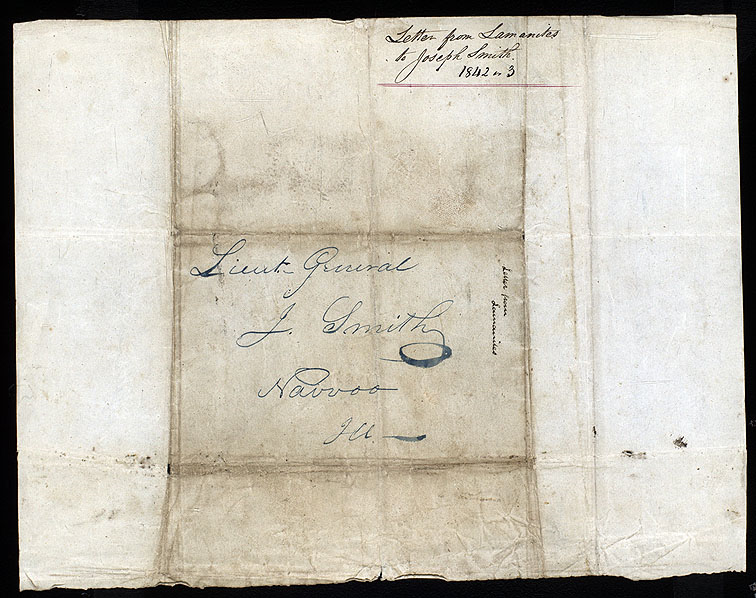 Letter from Lamanites
to Joseph Smith.
1842 or 3
Lieut- General
J. Smith
Navvoo
Ill. —
Letter from
Lamanites